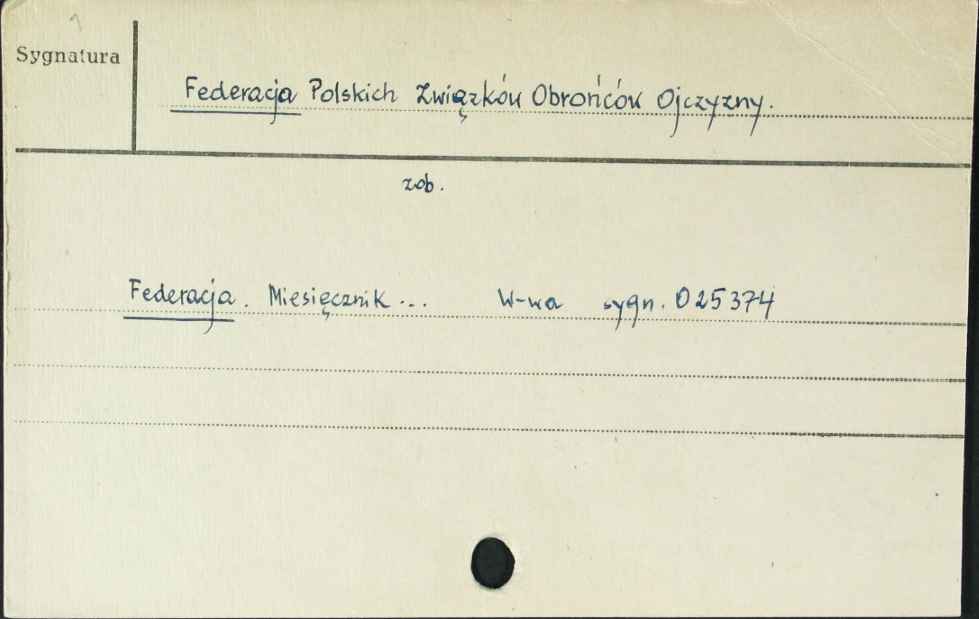 Sygnatura
Federacja Polskich Związków Obrońców Ojczyzny.
zob.
Federacja. Miesięcznik... W-wa sygn. 025374